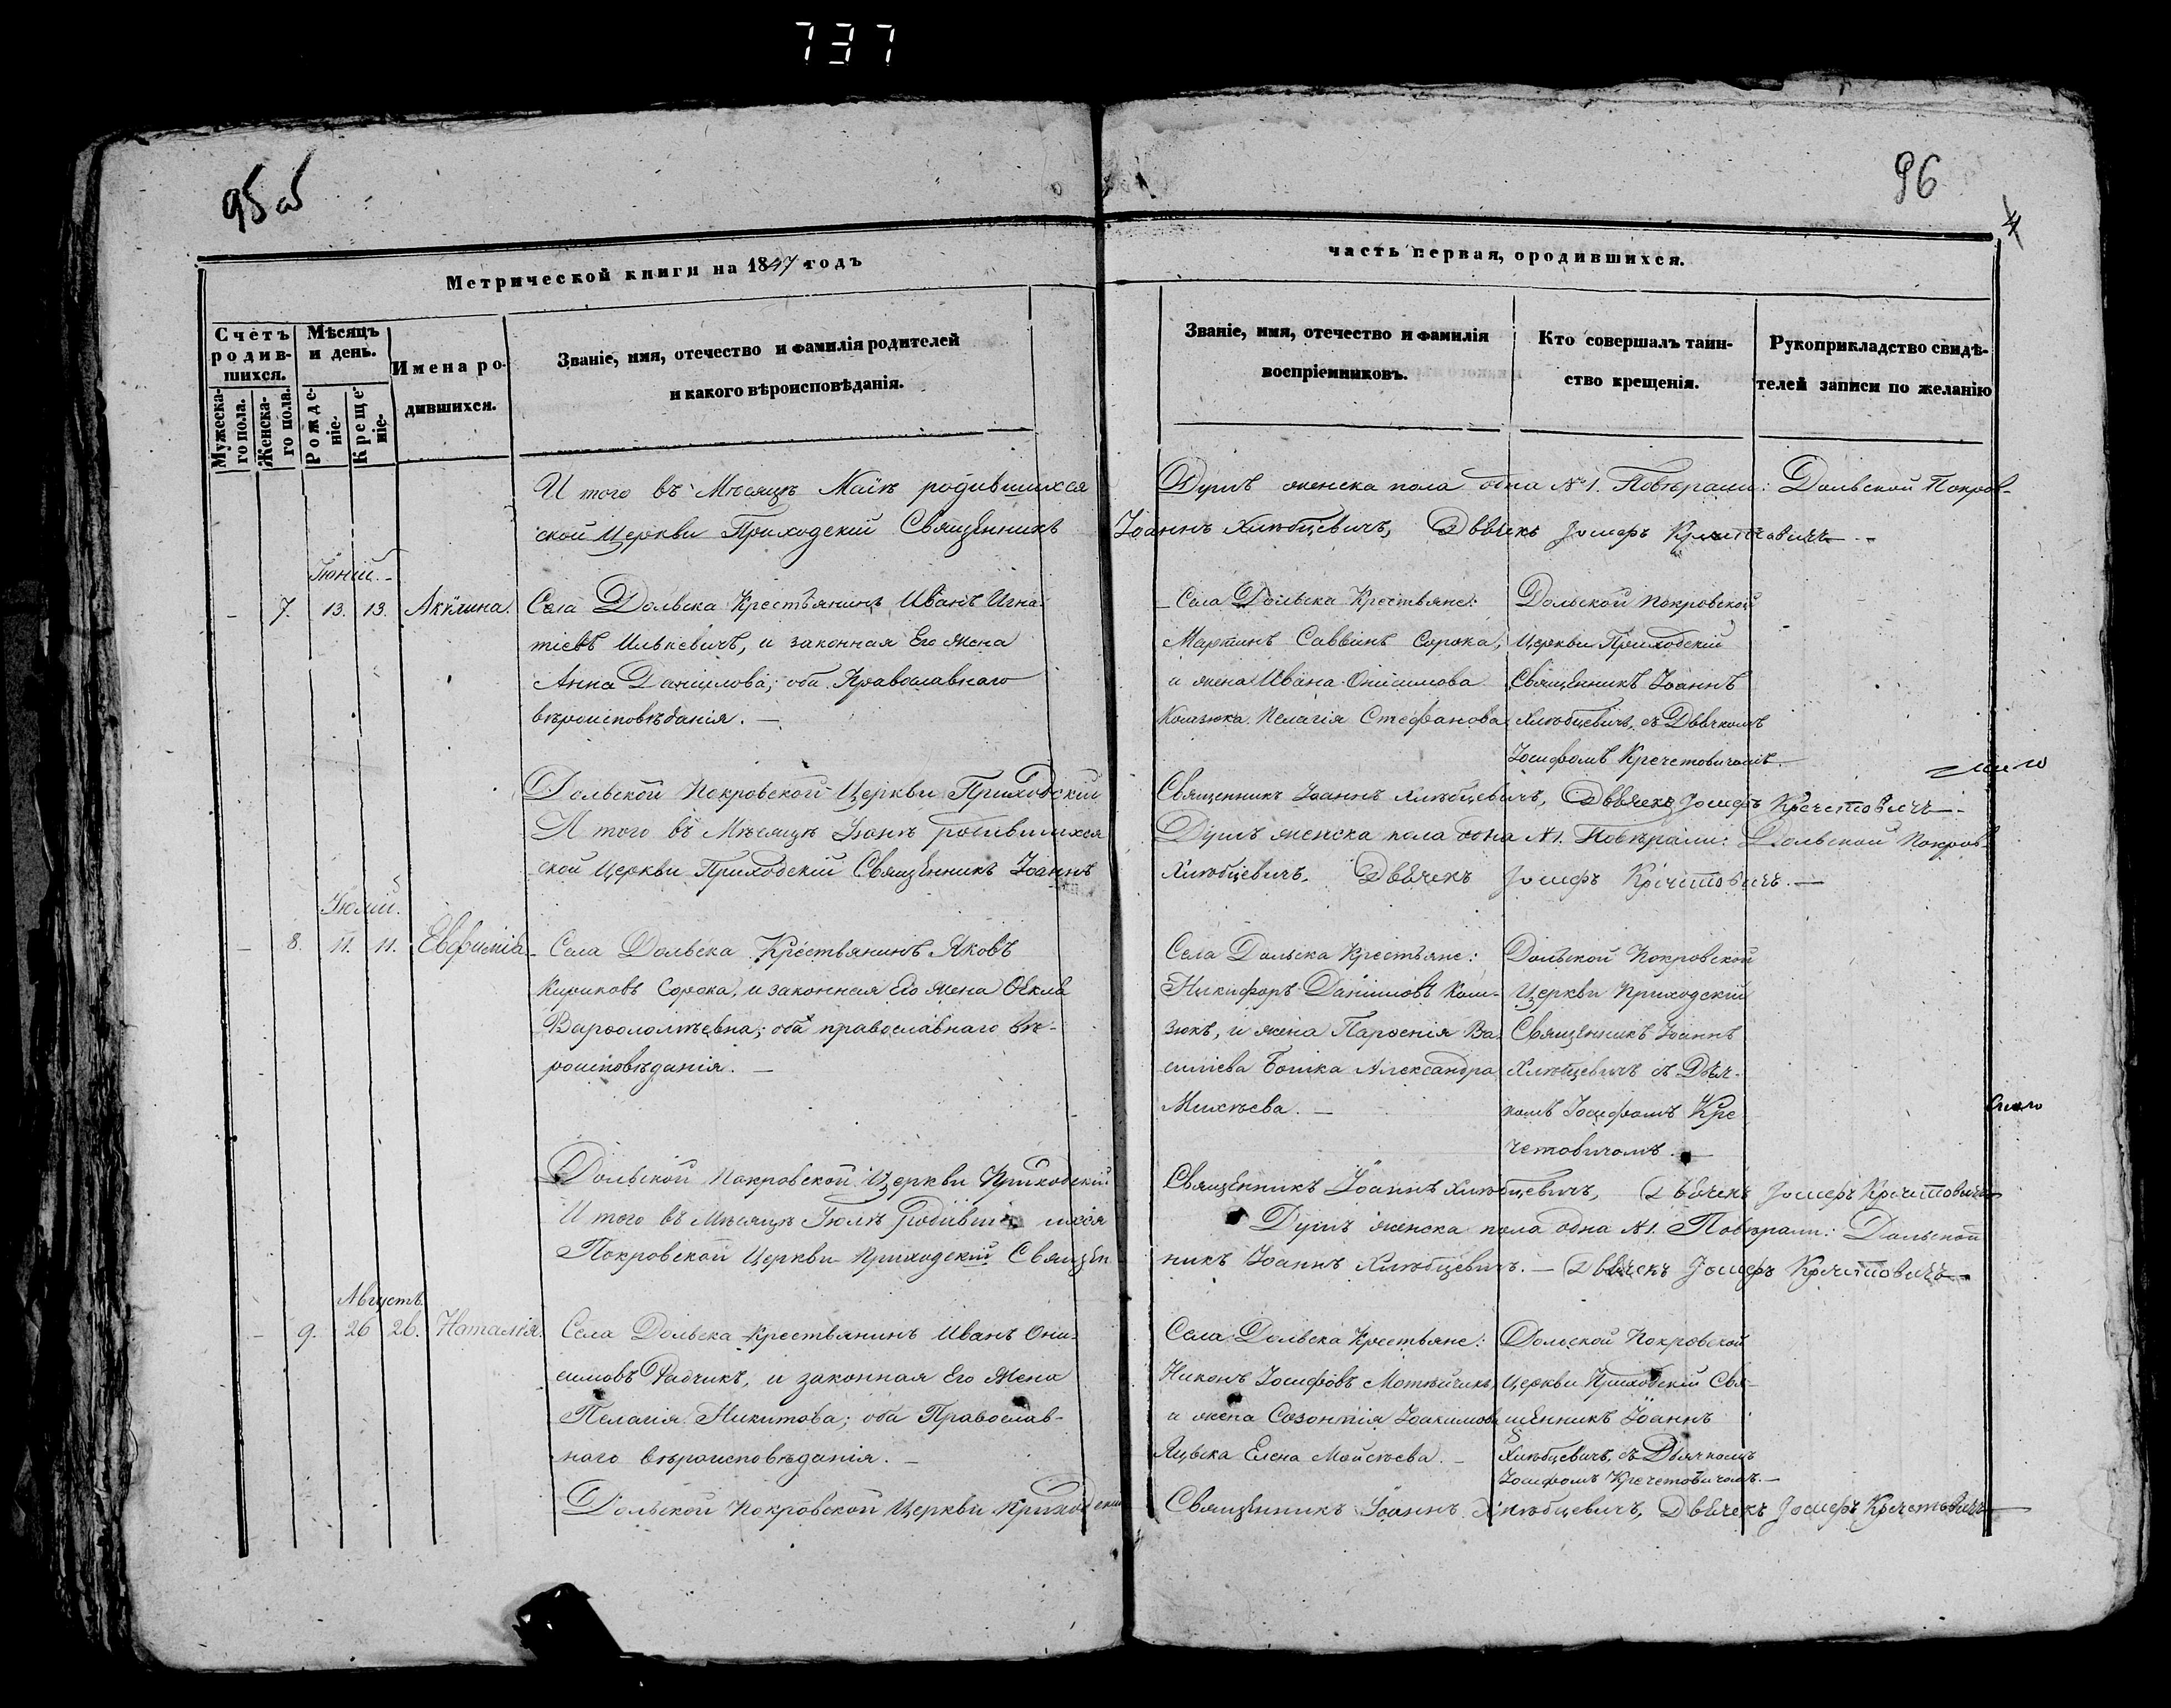 737
95об
96
4
Метрической книги на 1847 годъ
часть первая, ородившихся.
Счетъ родив-
шихся.
Мужеска-
го пола.
Женска-
го пола.
Мѣсяцъ
и день.
Рожде-
ніе.
Креще-
ніе.
Имена ро-
дившихся.
Званіе, имя, отечество и фамилія родителей
и какого вѣроисповѣданія.
Званіе, имя, отечество и фамилія
воспріемниковъ.
Кто совершалъ таин-
ство крещенія.
Рукоприкладство свидѣ-
телей записи по желанію
И того въ Мѣсяцѣ Маіѣ родившихся Душъ женска пола одна №1. Повѣряли: Дольской Покров-
ской Церкви Приходскій Священникъ Іоаннъ Хлѣбцевичъ, Дьячекъ Іосифъ Кречетовичъ
Іюній.
– 7. 13. 13. Акулина.
Села Дольска Крестьянинъ Иванъ Игна-
тіевъ Илькевичъ, и законная Его жена
Анна Данилова; оба Православнаго
вѣроисповѣданія. –
Села Дольска Крестьяне:
Мартинъ Саввинъ Сорока,
и жена Ивана Онисимова
Колазюка Пелагія Стефанова
Дольской Покровской
Церкви Приходскій
Священникъ Іоаннъ
Хлѣбцевичъ, съ Дьячкомъ
Іосифомъ Кречетовичомъ.
Дольской Покровской Церкви Приходскій Священникъ Іоаннъ Хлѣбцевичъ, Дьячекъ Іосифъ Кречетовичъ
И того въ Мѣсяцѣ Іюнѣ родившихся Душъ женска пола одна №1. Повѣряли: Дольской Покров-
ской Церкви Приходскій Священникъ Іоаннъ Хлѣбцевичъ. Дьячекъ Іосифъ Кречетовичъ. –
Іюлій.
– 8. 11. 11. Евфимія
Села Дольска Крестьянинъ Яковъ
Кириковъ Сорока, и законная Его жена Ѳекла
Варѳоломѣевна; оба православнаго вѣ-
роисповѣданія. –
Села Дольска Крестьяне:
Никифоръ Даніиловъ Кола-
зюкъ, и жена Парѳенія Ва-
силіева Бошка Александра
Михѣева. –
Дольской Покровской
Церкви Приходскій
Священникъ Іоаннъ
Хлѣбцевичъ съ Дьяч-
комъ Іосифомъ Кре
четовичомъ.
Дольской Покровской Церкви Приходскій Священникъ Іоаннъ Хлѣбцевичъ, Дьячекъ Іосифъ Кречетовичъ
И того въ Мѣсяцѣ Іюлѣ родившихся Душъ женска пола одна №1. Повѣряли: Дольской
Покровской Церкви Приходскій Священ никъ Іоаннъ Хлѣбцевичъ. – Дьячекъ Іосифъ Кречетовичъ
Августъ.
– 9. 26 26. Наталія.
Села Дольска Крестьянинъ Иванъ Они-
симовъ Радчикъ, и законная Его Жена
Пелагія Никитова; оба Православ-
наго вѣроисповѣданія. –
Села Дольска Крестьяне:
Никонъ Іосифовъ Мотѣйчикъ
и жена Созонтія Іоакимова
Яцыка Елена Мойсѣева. –
Дольской Покровской
Церкви Приходскій Свя-
щенникъ Іоаннъ
Хлѣбцевичъ, съ Дьячкомъ
Іосифомъ Кречетовичомъ. –
Дольской Покровской Церкви Приходскій Священникъ Іоаннъ Хлѣбцевичъ, Дьячекъ Іосифъ Кречетовичъ